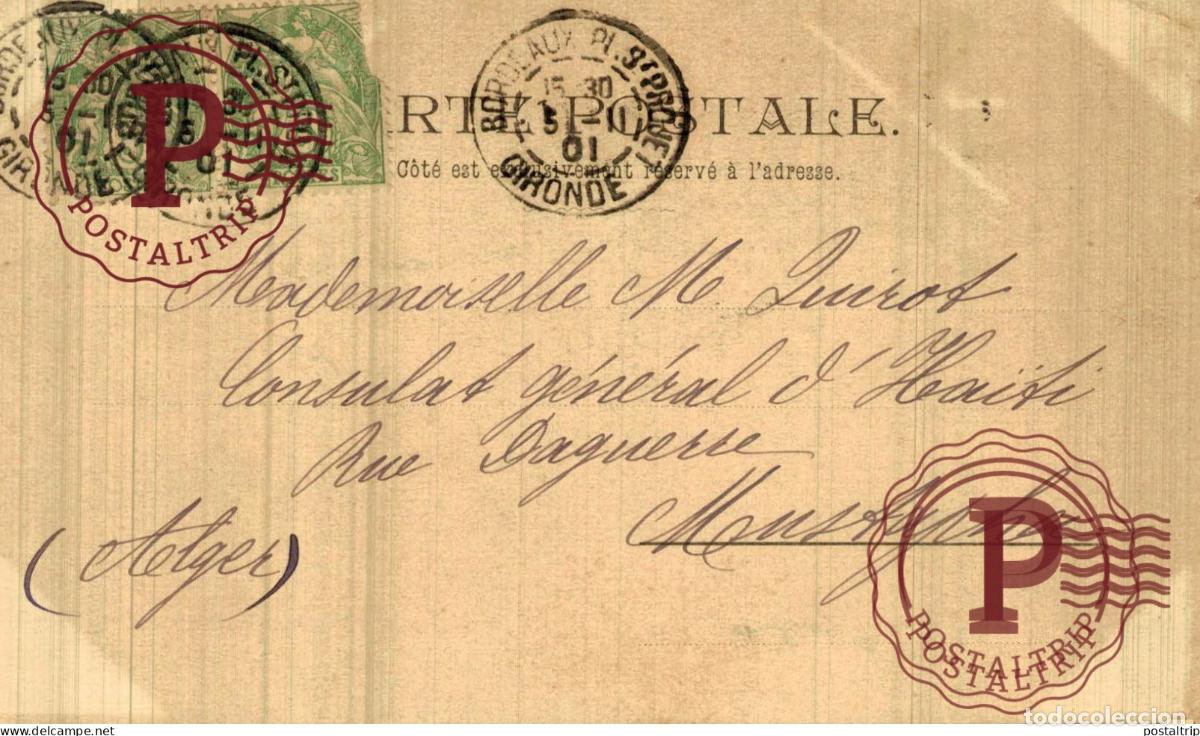 BORDEAUX Pl. St PROJET
15 30
5 - 11
01
GIRONDE
CARTE POSTALE.
Côté est exclusivement réservé à l'adresse.
Mademoiselle M. Quirot
Consulat général d'Haïti
Rue Daguerre
Mustapha
(Alger)
P
POSTALTRIP
P
POSTALTRIP
POSTALTRIP
todocoleccion
www.todocoleccion.net
postaltrip